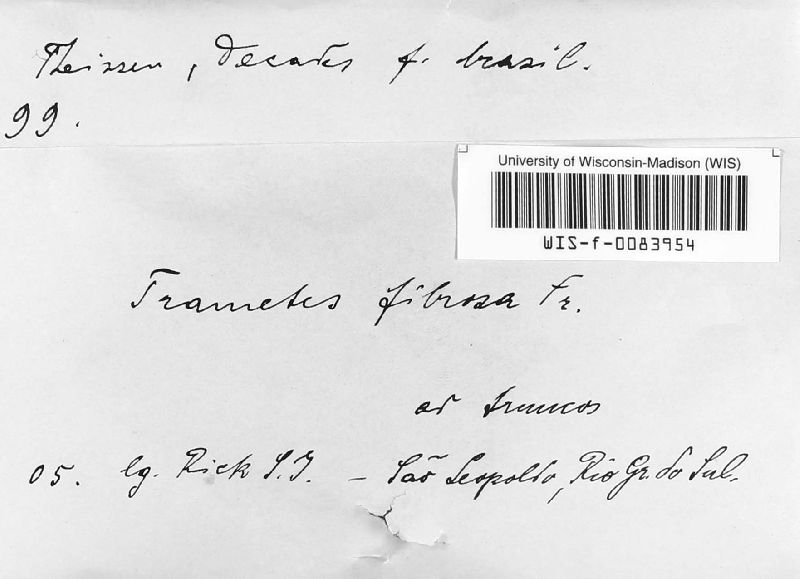 Theissen, Decades f. brasil.
99.
University of Wisconsin-Madison (WIS)
WIS-f-0083954
Trametes fibrosa Fr.
ad truncos
05. lg. Rick S.J. – São Leopoldo, Rio Gr. do Sul.